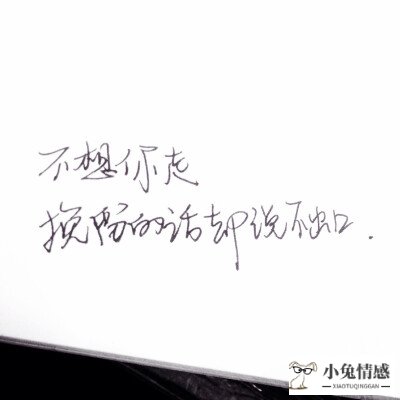 不想你走
挽留的话却说不出口.
小兔情感
XIAOTUQINGGAN